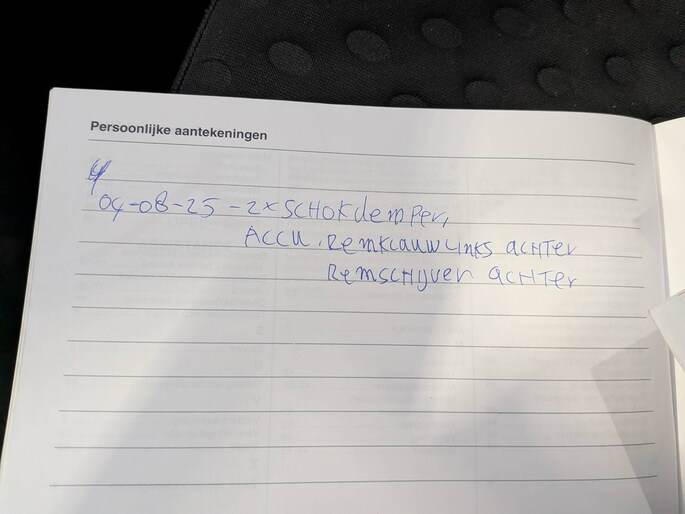 Persoonlijke aantekeningen
04-08-25 - 2x SCHOKdemper,
ACCU, Remklauw Links ACHTER
RemSCHijven ACHTER